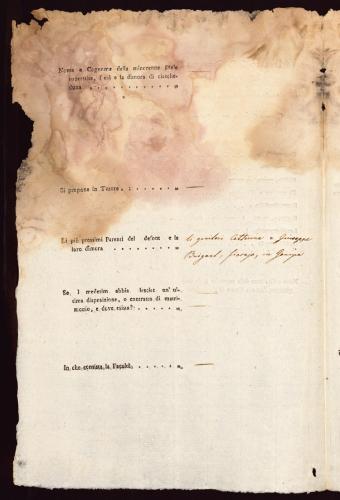 Nome e Cognome della minorenne prole
superstite, l'età e la dimora di ciasche-
duna . . . . . . . . . »
Si propone in Tutore . . . . . . . »
Li più prossimi Parenti del defonto e la loro dimora . . . . . . . . . »
Se i medesimi abbia lasciato un'ul-
tima disposizione, o contratto di matri-
monio, e dove esista? . . . . . . »
In che consista la Facoltà . . . . . »
li genitori Catterina e Giuseppe
in Gorizia